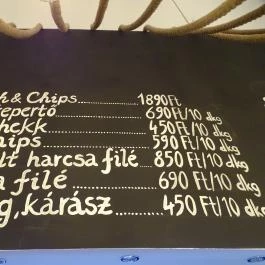 h & Chips 1890 Ft
epertő 690 Ft/10 dkg
hekk 450 Ft/10 dkg
hips 590 Ft/10 dkg
lt harcsa filé 850 Ft/10 dkg
a filé 690 Ft/10 dkg
g, kárász 450 Ft/10 dkg